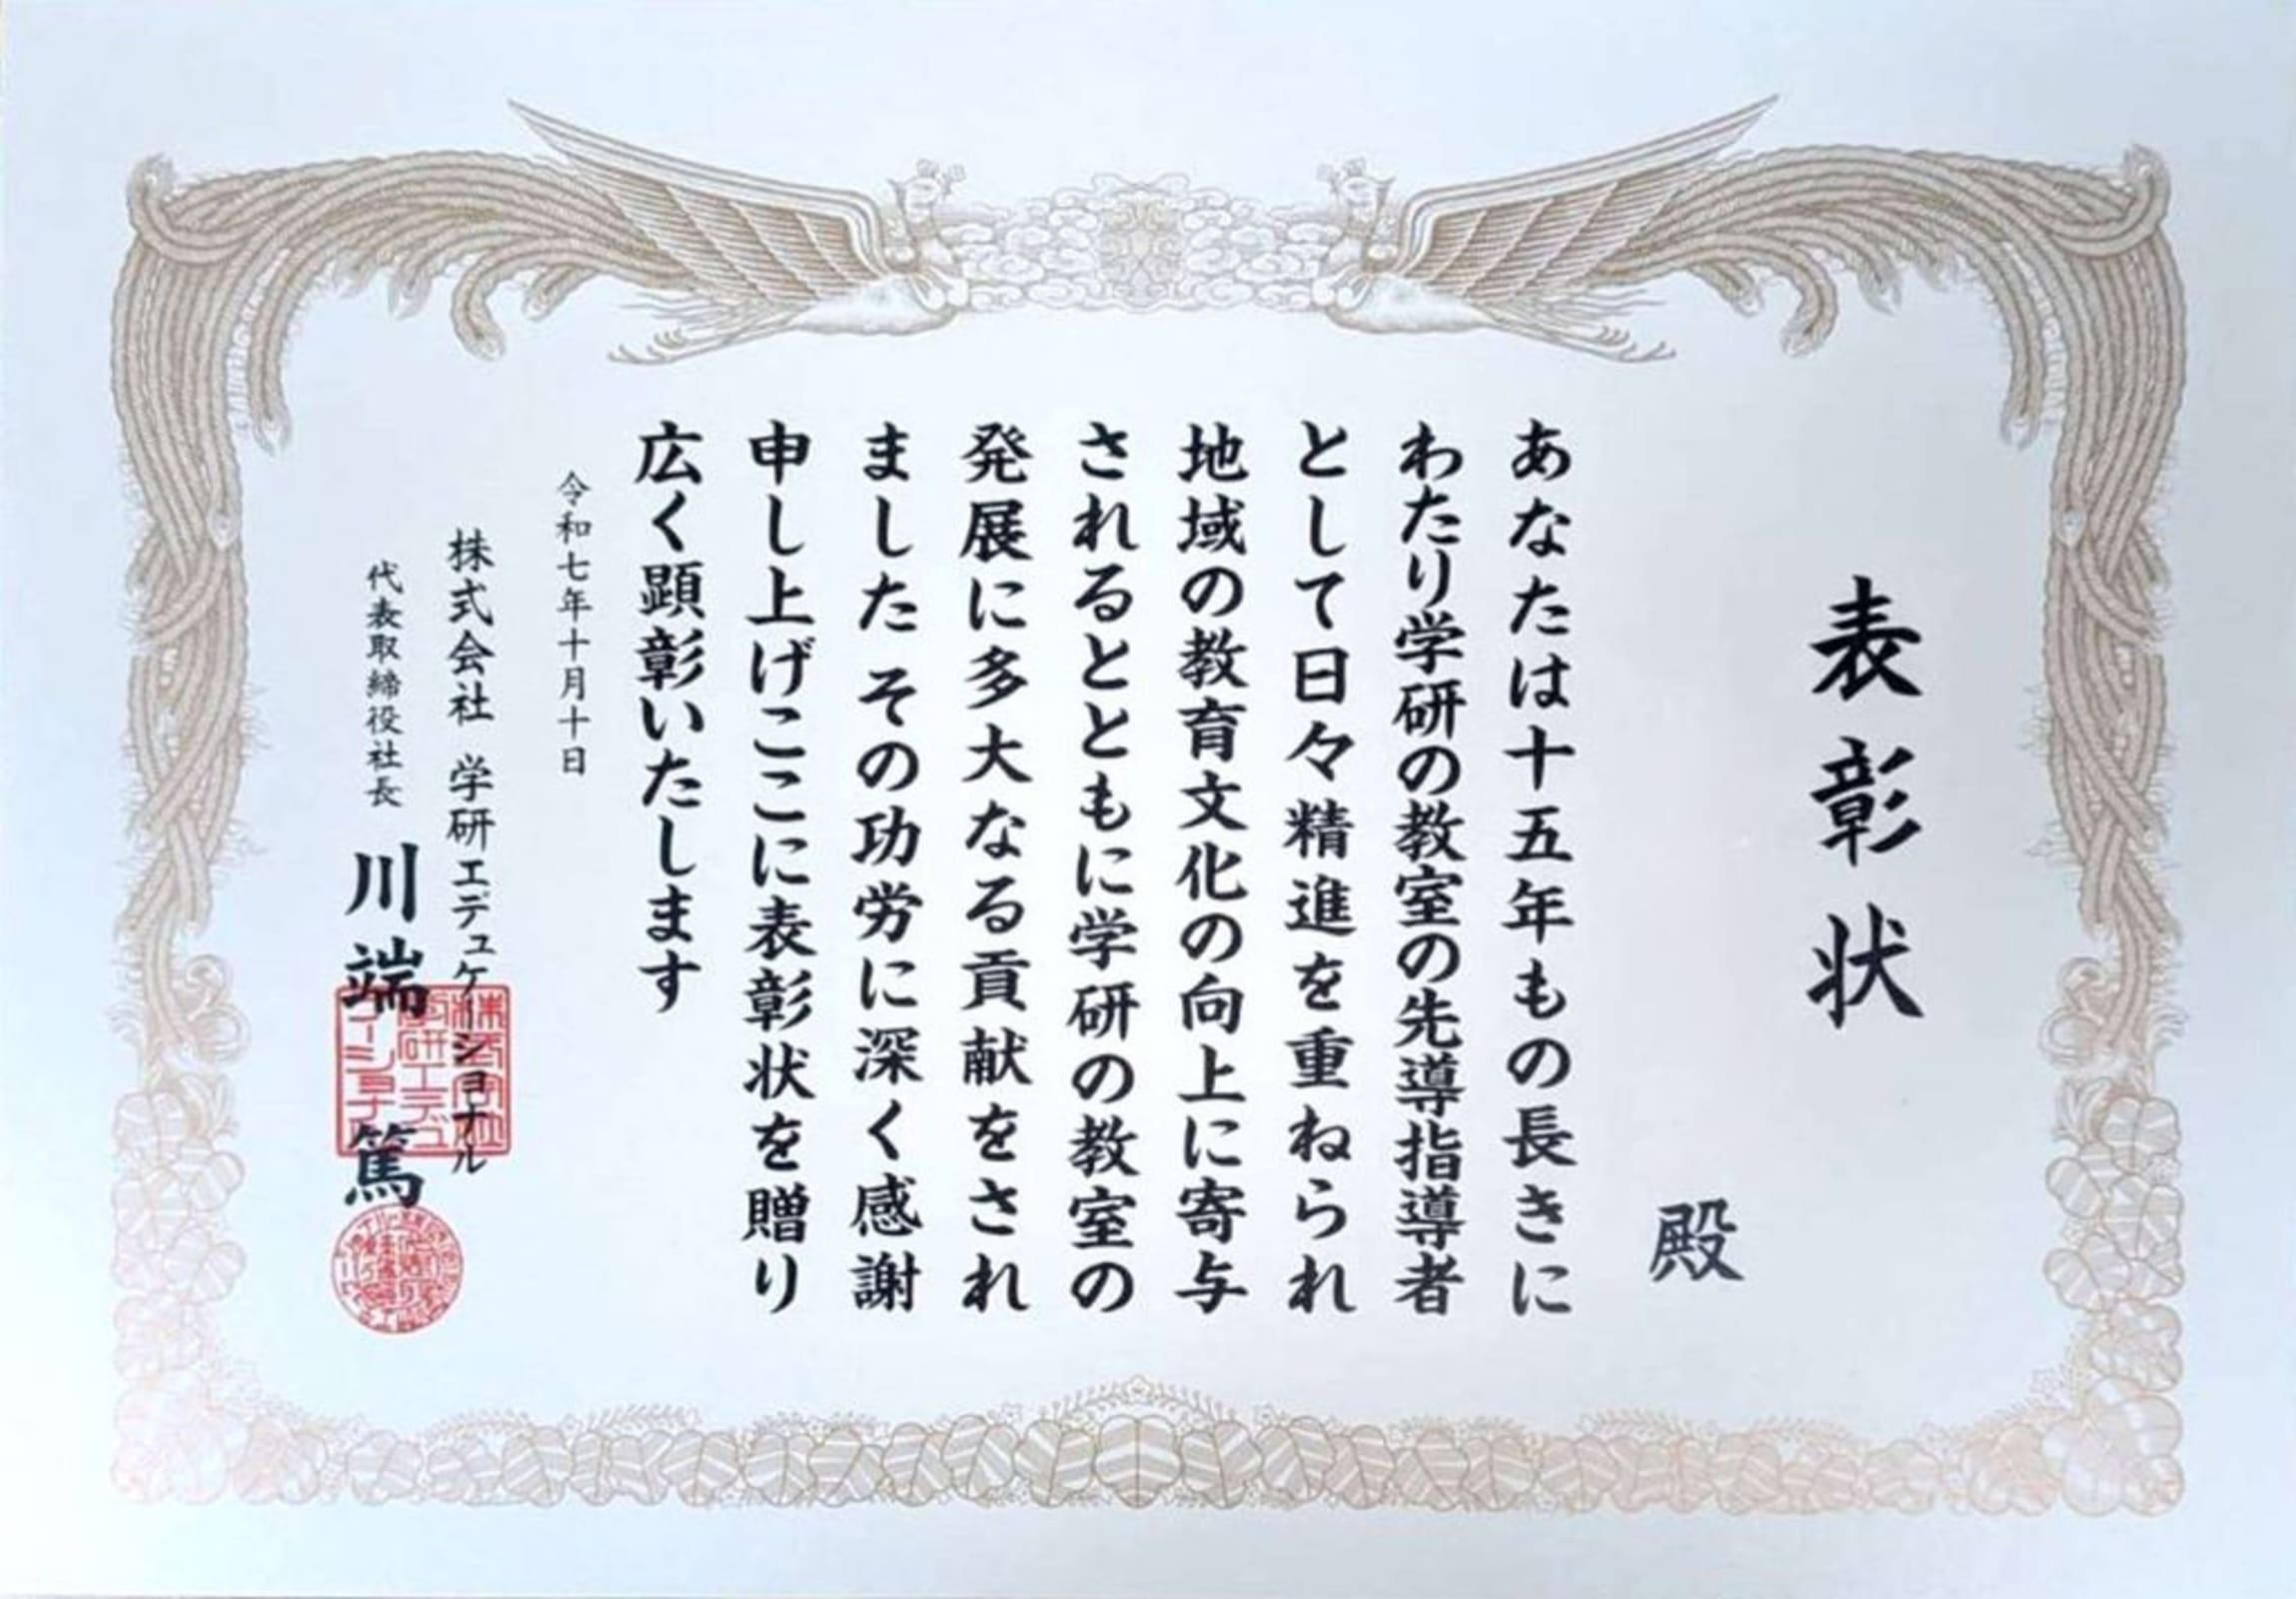 表彰状
殿
あなたは十五年もの長きに
わたり学研の教室の先導指導者
として日々精進を重ねられ
地域の教育文化の向上に寄与
されるとともに学研の教室の
発展に多大なる貢献をされ
ました その功労に深く感謝
申し上げここに表彰状を贈り
広く顕彰いたします
令和七年十月十日
株式会社 学研エデュケーショナル
代表取締役社長 川端 篤